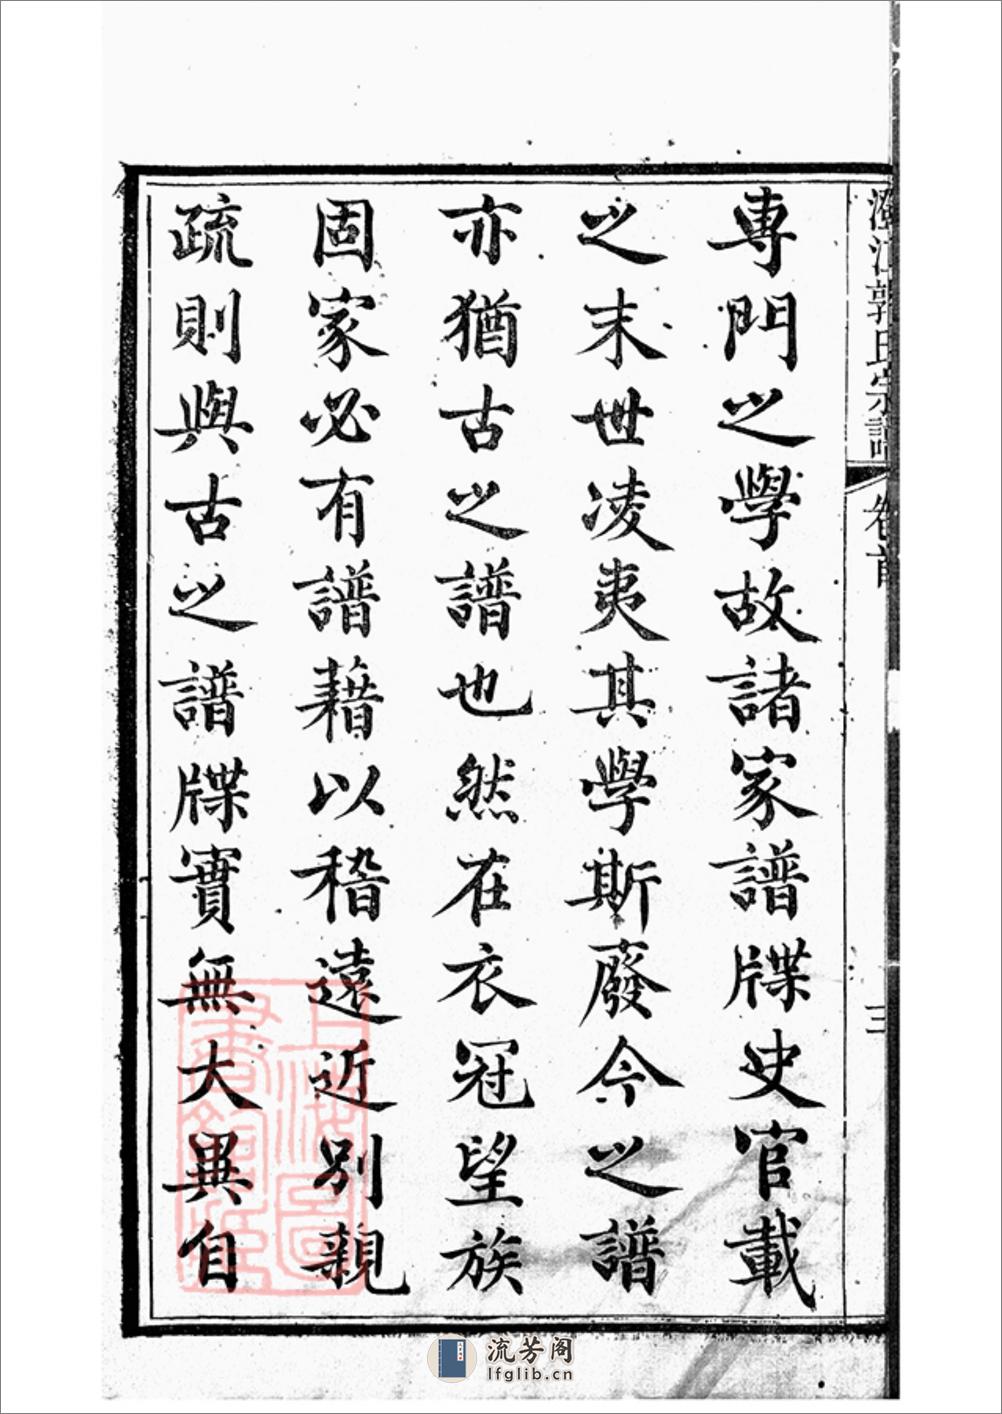 澄江郭氏宗譜
卷首
三
專門之學故諸家譜牒史官載
之末世凌夷其學斯廢今之譜
亦猶古之譜也然在衣冠望族
固家必有譜藉以稽遠近別親
疏則與古之譜牒實無大異自
上海圖書館藏
流芳阁
lfglib.cn